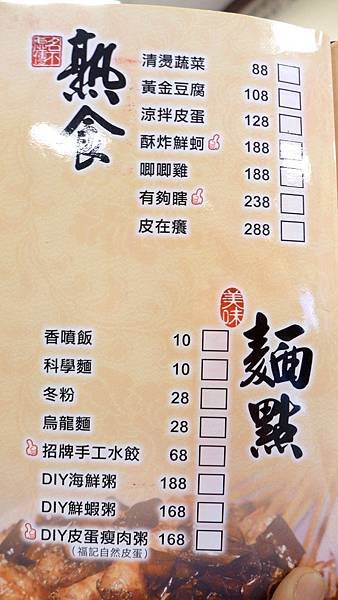 熟食
清燙蔬菜 88
黃金豆腐 108
涼拌皮蛋 128
酥炸鮮蚵 188
唧唧雞 188
有夠瞎 238
皮在癢 288
美味
麵點
香噴飯 10
科學麵 10
冬粉 28
烏龍麵 28
招牌手工水餃 68
DIY海鮮粥 188
DIY鮮蝦粥 168
DIY皮蛋瘦肉粥 168
(福記自然皮蛋)